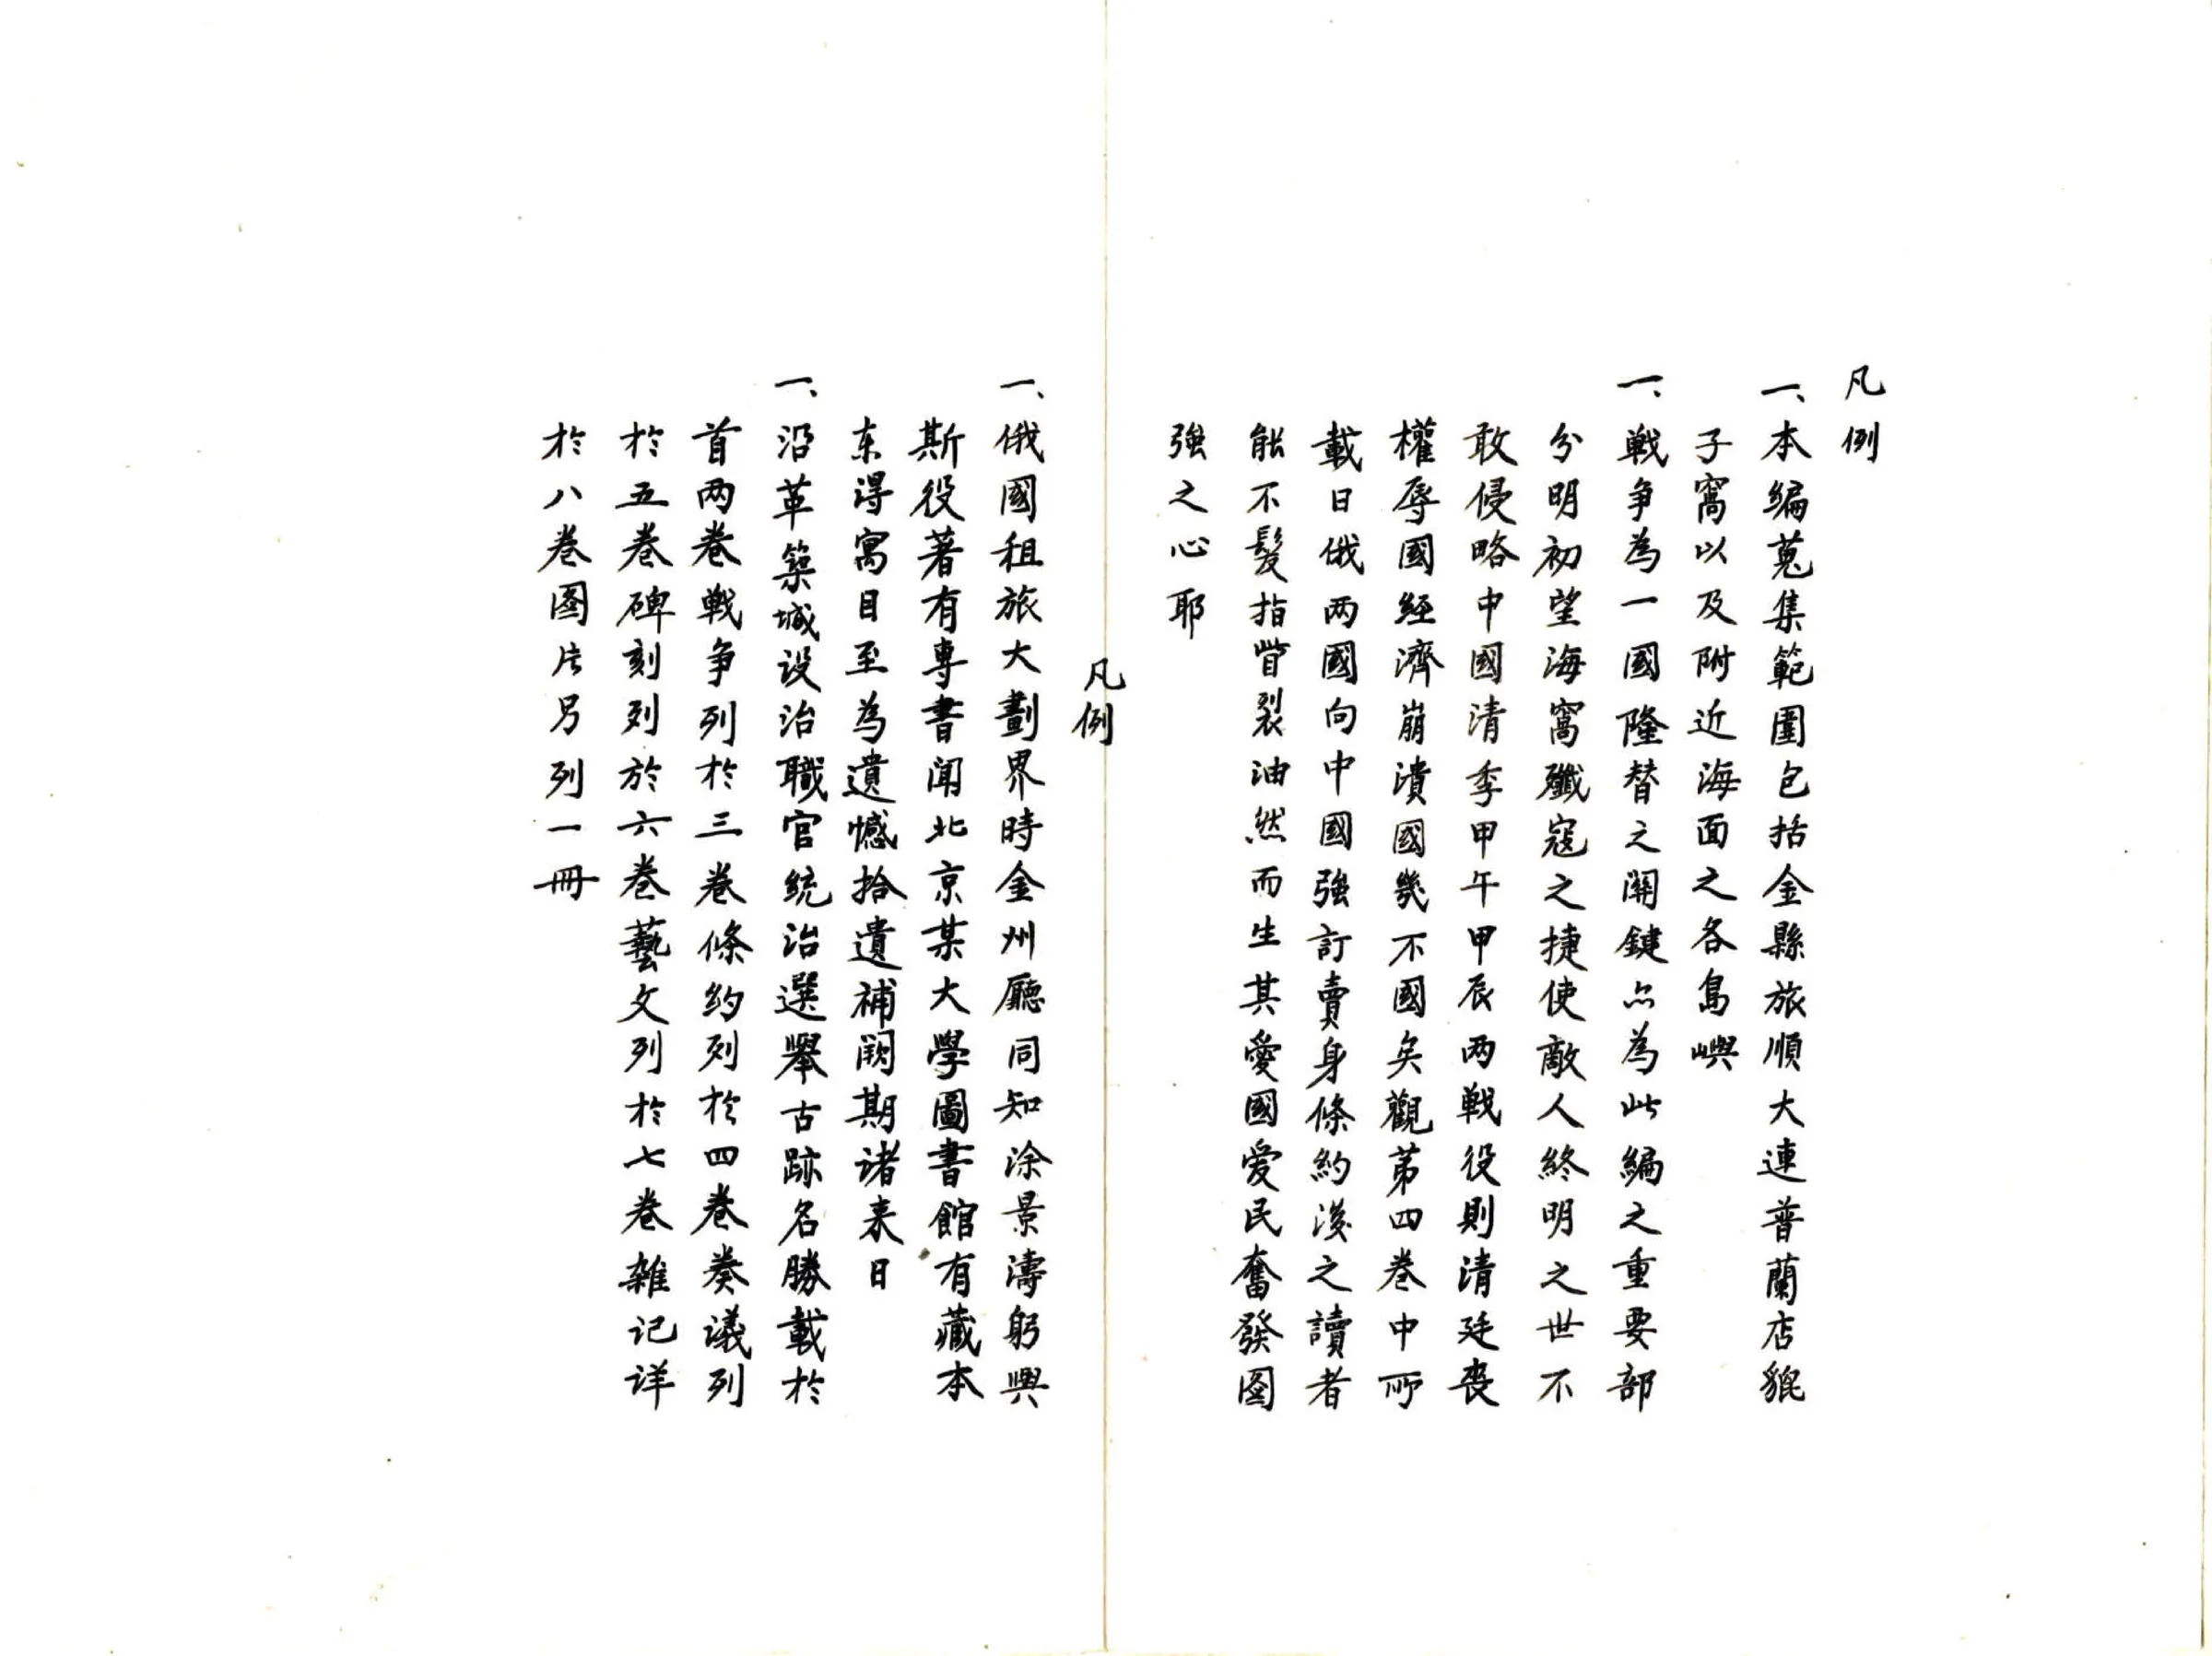 凡例
一、本編蒐集範圍包括金縣旅順大連普蘭店貔
子窩以及附近海面之各島嶼
一、戰争為一國隆替之關鍵亦為此編之重要部
分明初望海窩殲寇之捷使敵人終明之世不
敢侵略中國清季甲午甲辰两戰役則清廷喪
權辱國經濟崩潰國幾不國矣觀第四卷中所
載日俄两國向中國強訂賣身條約後之讀者
能不髮指眥裂油然而生其愛國愛民奮發图
強之心耶
凡例
一、俄國租旅大劃界時金州廳同知涂景濤躬與
斯役著有專書聞北京某大學圖書館有藏本
未得寓目至為遺憾拾遺補闕期诸来日
一、沿革築城设治職官統治選舉古跡名勝載於
首两卷戰争列於三卷條约列於四卷奏議列
於五卷碑刻列於六卷藝文列於七卷雜记详
於八卷图片另列一冊